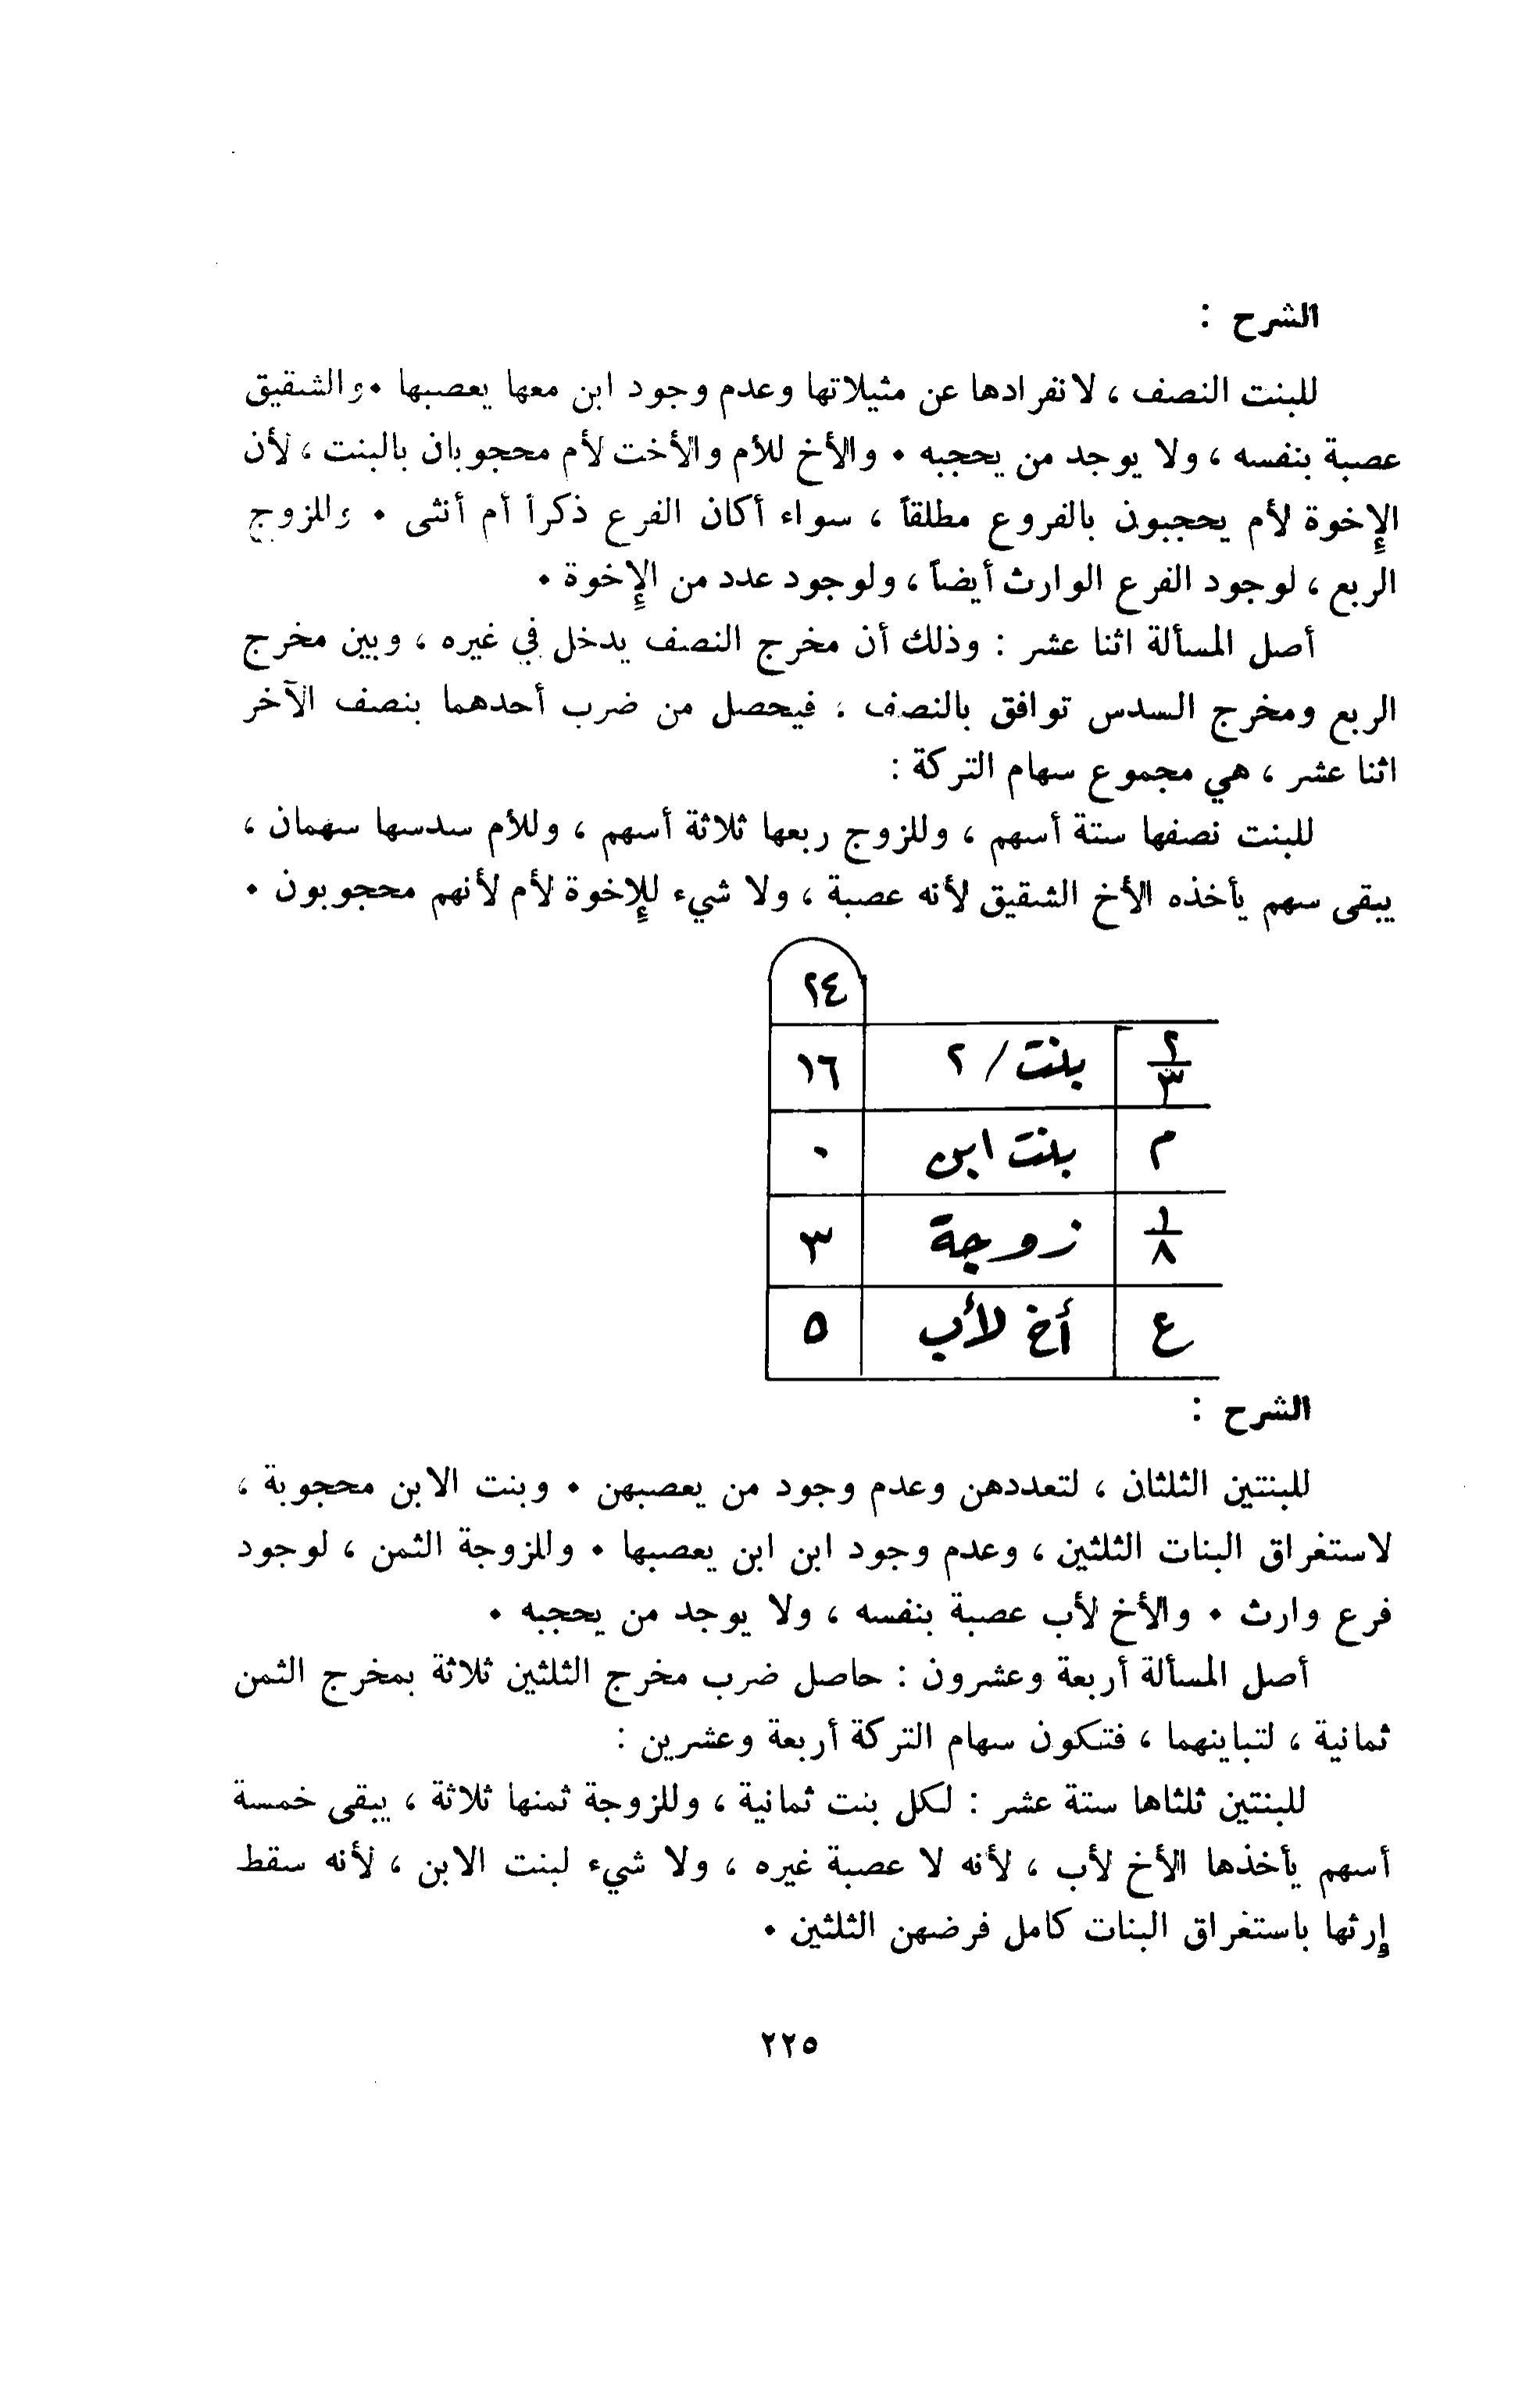 الشرح :
للبنت النصف ، لانفرادها عن مثيلاتها وعدم وجود ابن معها يعصبها ٠ والشقيق
عصبة بنفسه ، ولا يوجد من يحجبه ٠ والأخ للأم والأخت لأم محجوبان بالبنت ، لأن
الإخوة لأم يحجبون بالفروع مطلقاً ، سواء أكان الفرع ذكراً أم أنثى ٠ وللزوج
الربع ، لوجود الفرع الوارث أيضاً ، ولوجود عدد من الإخوة ٠
أصل المسألة اثنا عشر : وذلك أن مخرج النصف يدخل في غيره ، وبين مخرج
الربع ومخرج السدس توافق بالنصف ، فيحصل من ضرب أحدهما بنصف الآخر
اثنا عشر ، هي مجموع سهام التركة :
للبنت نصفها ستة أسهم ، وللزوج ربعها ثلاثة أسهم ، وللأم سدسها سهمان ،
يبقى سهم يأخذه الأخ الشقيق لأنه عصبة ، ولا شيء للإخوة لأم لأنهم محجوبون ٠
٢٤
٢/٣ بنت / ٢ ١٦
م بنت ابن ٠
١/٨ زوجة ٣
ع أخ لأب ٥
الشرح :
للبنتين الثلثان ، لتعددهن وعدم وجود من يعصبهن ٠ وبنت الابن محجوبة ،
لاستغراق البنات الثلثين ، وعدم وجود ابن ابن يعصبها ٠ وللزوجة الثمن ، لوجود
فرع وارث ٠ والأخ لأب عصبة بنفسه ، ولا يوجد من يحجبه ٠
أصل المسألة أربعة وعشرون : حاصل ضرب مخرج الثلثين ثلاثة بمخرج الثمن
ثمانية ، لتباينهما ، فتكون سهام التركة أربعة وعشرين :
للبنتين ثلثاها ستة عشر : لكل بنت ثمانية ، وللزوجة ثمنها ثلاثة ، يبقى خمسة
أسهم يأخذها الأخ لأب ، لأنه لا عصبة غيره ، ولا شيء لبنت الابن ، لأنه سقط
إرثها باستغراق البنات كامل فرضهن الثلثين ٠
٢٢٥